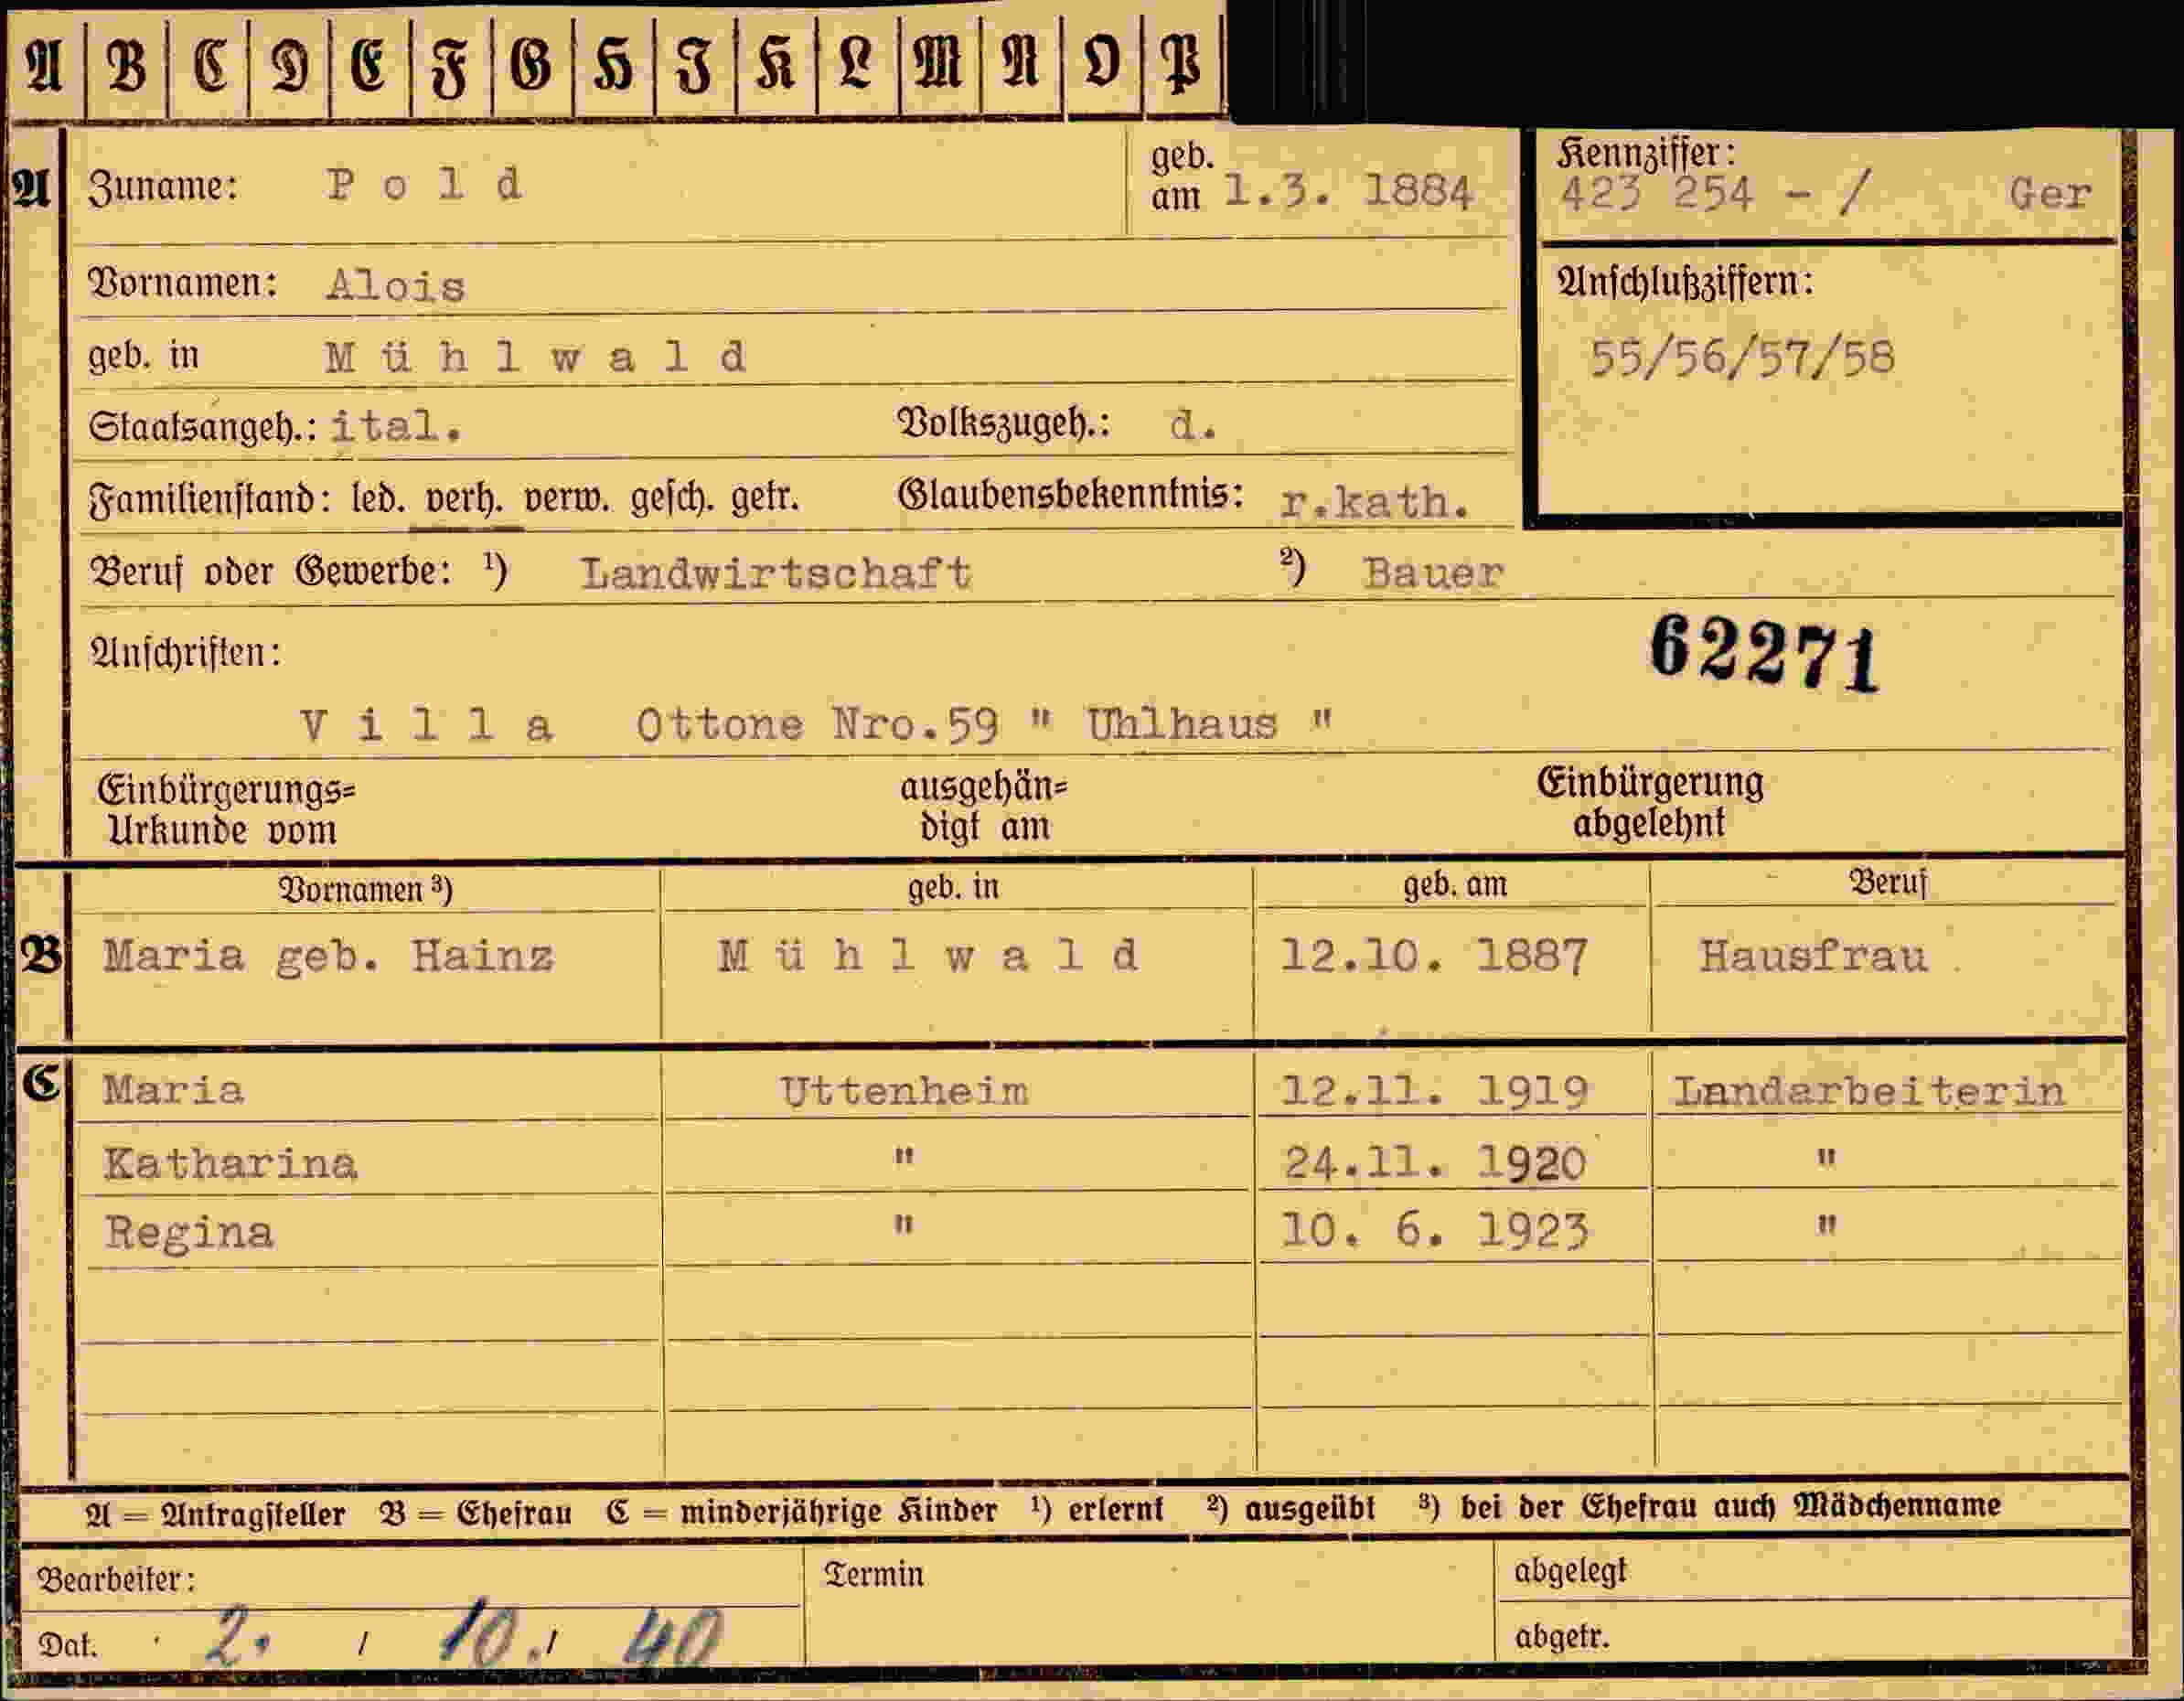 A B C D E F G H I K L M N O P
A Zuname: Pold geb. am 1.3. 1884
Kennziffer:
423 254 - / Ger
Vornamen: Alois
Anschlußziffern:
55/56/57/58
geb. in Mühlwald
Staatsangeh.: ital. Volkszugeh.: d.
Familienstand: led. verh. verw. gesch. getr. Glaubensbekenntnis: r.kath.
Beruf oder Gewerbe: ¹) Landwirtschaft ²) Bauer
Anschriften:
62271
Villa Ottone Nro.59 " Uhlhaus "
Einbürgerungs= ausgehän= Einbürgerung
Urkunde vom digt am abgelehnt
Vornamen ³) geb. in geb. am Beruf
B Maria geb. Hainz Mühlwald 12.10. 1887 Hausfrau
C Maria Uttenheim 12.11. 1919 Landarbeiterin
Katharina " 24.11. 1920 "
Regina " 10. 6. 1923 "
A = Antragsteller B = Ehefrau C = minderjährige Kinder ¹) erlernt ²) ausgeübt ³) bei der Ehefrau auch Mädchenname
Bearbeiter: Termin abgelegt
Dat. 2. / 10. / 40 abgetr.